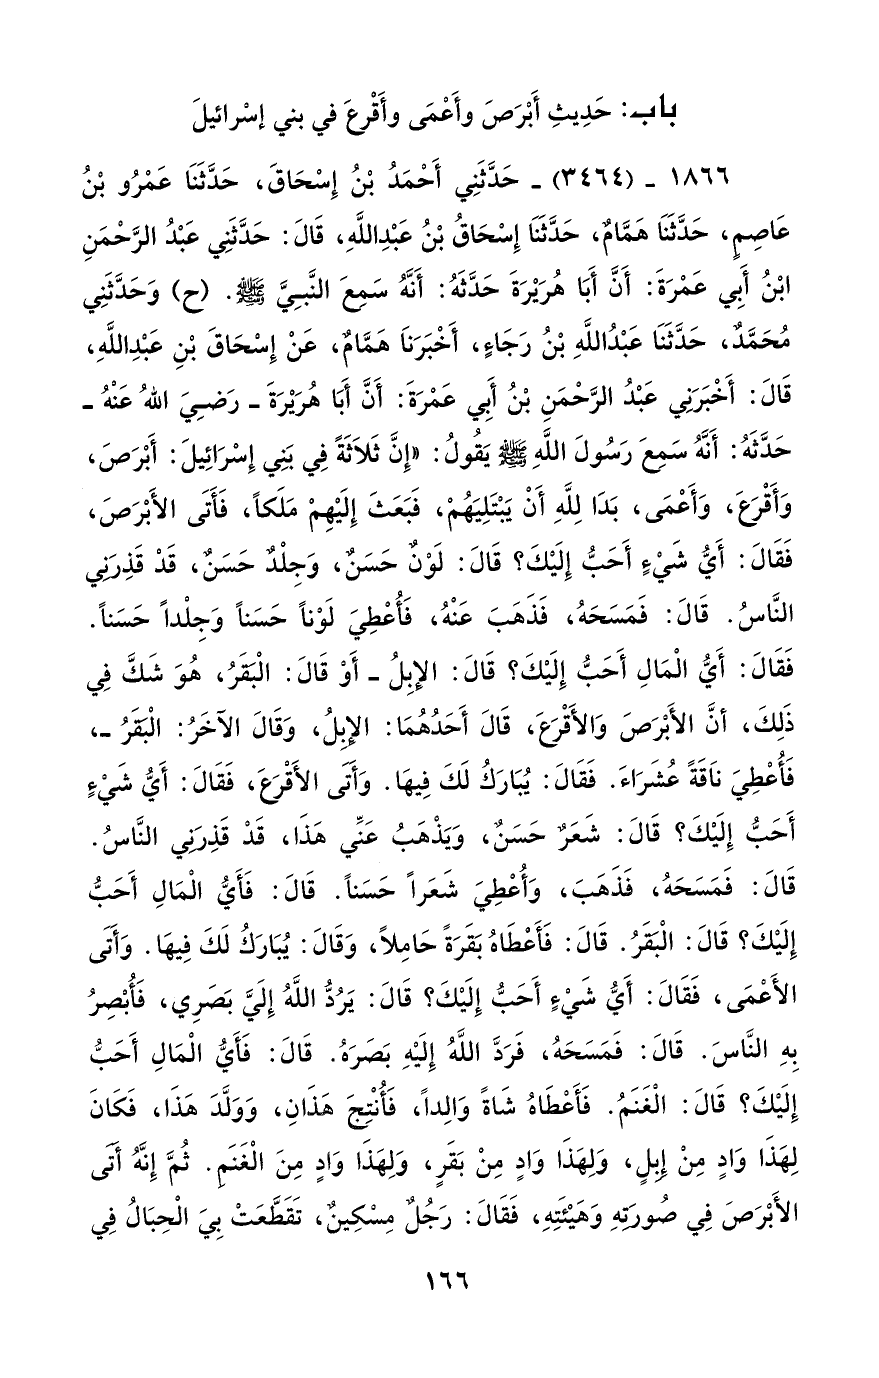 باب: حَدِيثِ أَبْرَصَ وأَعْمَى وأَقْرعَ في بني إسْرائيلَ
١٨٦٦ ـ (٣٤٦٤) ـ حَدَّثَنِي أَحْمَدُ بْنُ إِسْحَاقَ، حَدَّثَنَا عَمْرُو بْنُ
عَاصِمٍ، حَدَّثَنَا هَمَّامٌ، حَدَّثَنَا إِسْحَاقُ بْنُ عَبْدِاللَّهِ، قَالَ: حَدَّثَنِي عَبْدُ الرَّحْمَنِ
ابْنُ أَبِي عَمْرَةَ: أَنَّ أَبَا هُرَيْرَةَ حَدَّثَهُ: أَنَّهُ سَمِعَ النَّبِيَّ ﷺ. (ح) وَحَدَّثَنِي
مُحَمَّدٌ، حَدَّثَنَا عَبْدُاللَّهِ بْنُ رَجَاءٍ، أَخْبَرَنَا هَمَّامٌ، عَنْ إِسْحَاقَ بْنِ عَبْدِاللَّهِ،
قَالَ: أَخْبَرَنِي عَبْدُ الرَّحْمَنِ بْنُ أَبِي عَمْرَةَ: أَنَّ أَبَا هُرَيْرَةَ ـ رَضِيَ اللهُ عَنْهُ ـ
حَدَّثَهُ: أَنَّهُ سَمِعَ رَسُولَ اللَّهِ ﷺ يَقُولُ: «إِنَّ ثَلَاثَةً فِي بَنِي إِسْرَائِيلَ: أَبْرَصَ،
وَأَقْرَعَ، وَأَعْمَى، بَدَا لِلَّهِ أَنْ يَبْتَلِيَهُمْ، فَبَعَثَ إِلَيْهِمْ مَلَكاً، فَأَتَى الأَبْرَصَ،
فَقَالَ: أَيُّ شَيْءٍ أَحَبُّ إِلَيْكَ؟ قَالَ: لَوْنٌ حَسَنٌ، وَجِلْدٌ حَسَنٌ، قَدْ قَذِرَنِي
النَّاسُ. قَالَ: فَمَسَحَهُ، فَذَهَبَ عَنْهُ، فَأُعْطِيَ لَوْناً حَسَناً وَجِلْداً حَسَناً.
فَقَالَ: أَيُّ الْمَالِ أَحَبُّ إِلَيْكَ؟ قَالَ: الإِبِلُ ـ أَوْ قَالَ: الْبَقَرُ، هُوَ شَكَّ فِي
ذَلِكَ، أنَّ الأَبْرَصَ وَالأَقْرَعَ، قَالَ أَحَدُهُمَا: الإِبِلُ، وَقَالَ الآخَرُ: الْبَقَرُ ـ،
فَأُعْطِيَ نَاقَةً عُشَرَاءَ. فَقَالَ: يُبَارَكُ لَكَ فِيهَا. وَأَتَى الأَقْرَعَ، فَقَالَ: أَيُّ شَيْءٍ
أَحَبُّ إِلَيْكَ؟ قَالَ: شَعَرٌ حَسَنٌ، وَيَذْهَبُ عَنِّي هَذَا، قَدْ قَذِرَنِي النَّاسُ.
قَالَ: فَمَسَحَهُ، فَذَهَبَ، وَأُعْطِيَ شَعَراً حَسَناً. قَالَ: فَأَيُّ الْمَالِ أَحَبُّ
إِلَيْكَ؟ قَالَ: الْبَقَرُ. قَالَ: فَأَعْطَاهُ بَقَرَةً حَامِلاً، وَقَالَ: يُبَارَكُ لَكَ فِيهَا. وَأَتَى
الأَعْمَى، فَقَالَ: أَيُّ شَيْءٍ أَحَبُّ إِلَيْكَ؟ قَالَ: يَرُدُّ اللَّهُ إِلَيَّ بَصَرِي، فَأُبْصِرُ
بِهِ النَّاسَ. قَالَ: فَمَسَحَهُ، فَرَدَّ اللَّهُ إِلَيْهِ بَصَرَهُ. قَالَ: فَأَيُّ الْمَالِ أَحَبُّ
إِلَيْكَ؟ قَالَ: الْغَنَمُ. فَأَعْطَاهُ شَاةً وَالِداً، فَأُنْتِجَ هَذَانِ، وَوَلَّدَ هَذَا، فَكَانَ
لِهَذَا وَادٍ مِنْ إِبِلٍ، وَلِهَذَا وَادٍ مِنْ بَقَرٍ، وَلِهَذَا وَادٍ مِنَ الْغَنَمِ. ثُمَّ إِنَّهُ أَتَى
الأَبْرَصَ فِي صُورَتِهِ وَهَيْئَتِهِ، فَقَالَ: رَجُلٌ مِسْكِينٌ، تَقَطَّعَتْ بِيَ الْحِبَالُ فِي
١٦٦